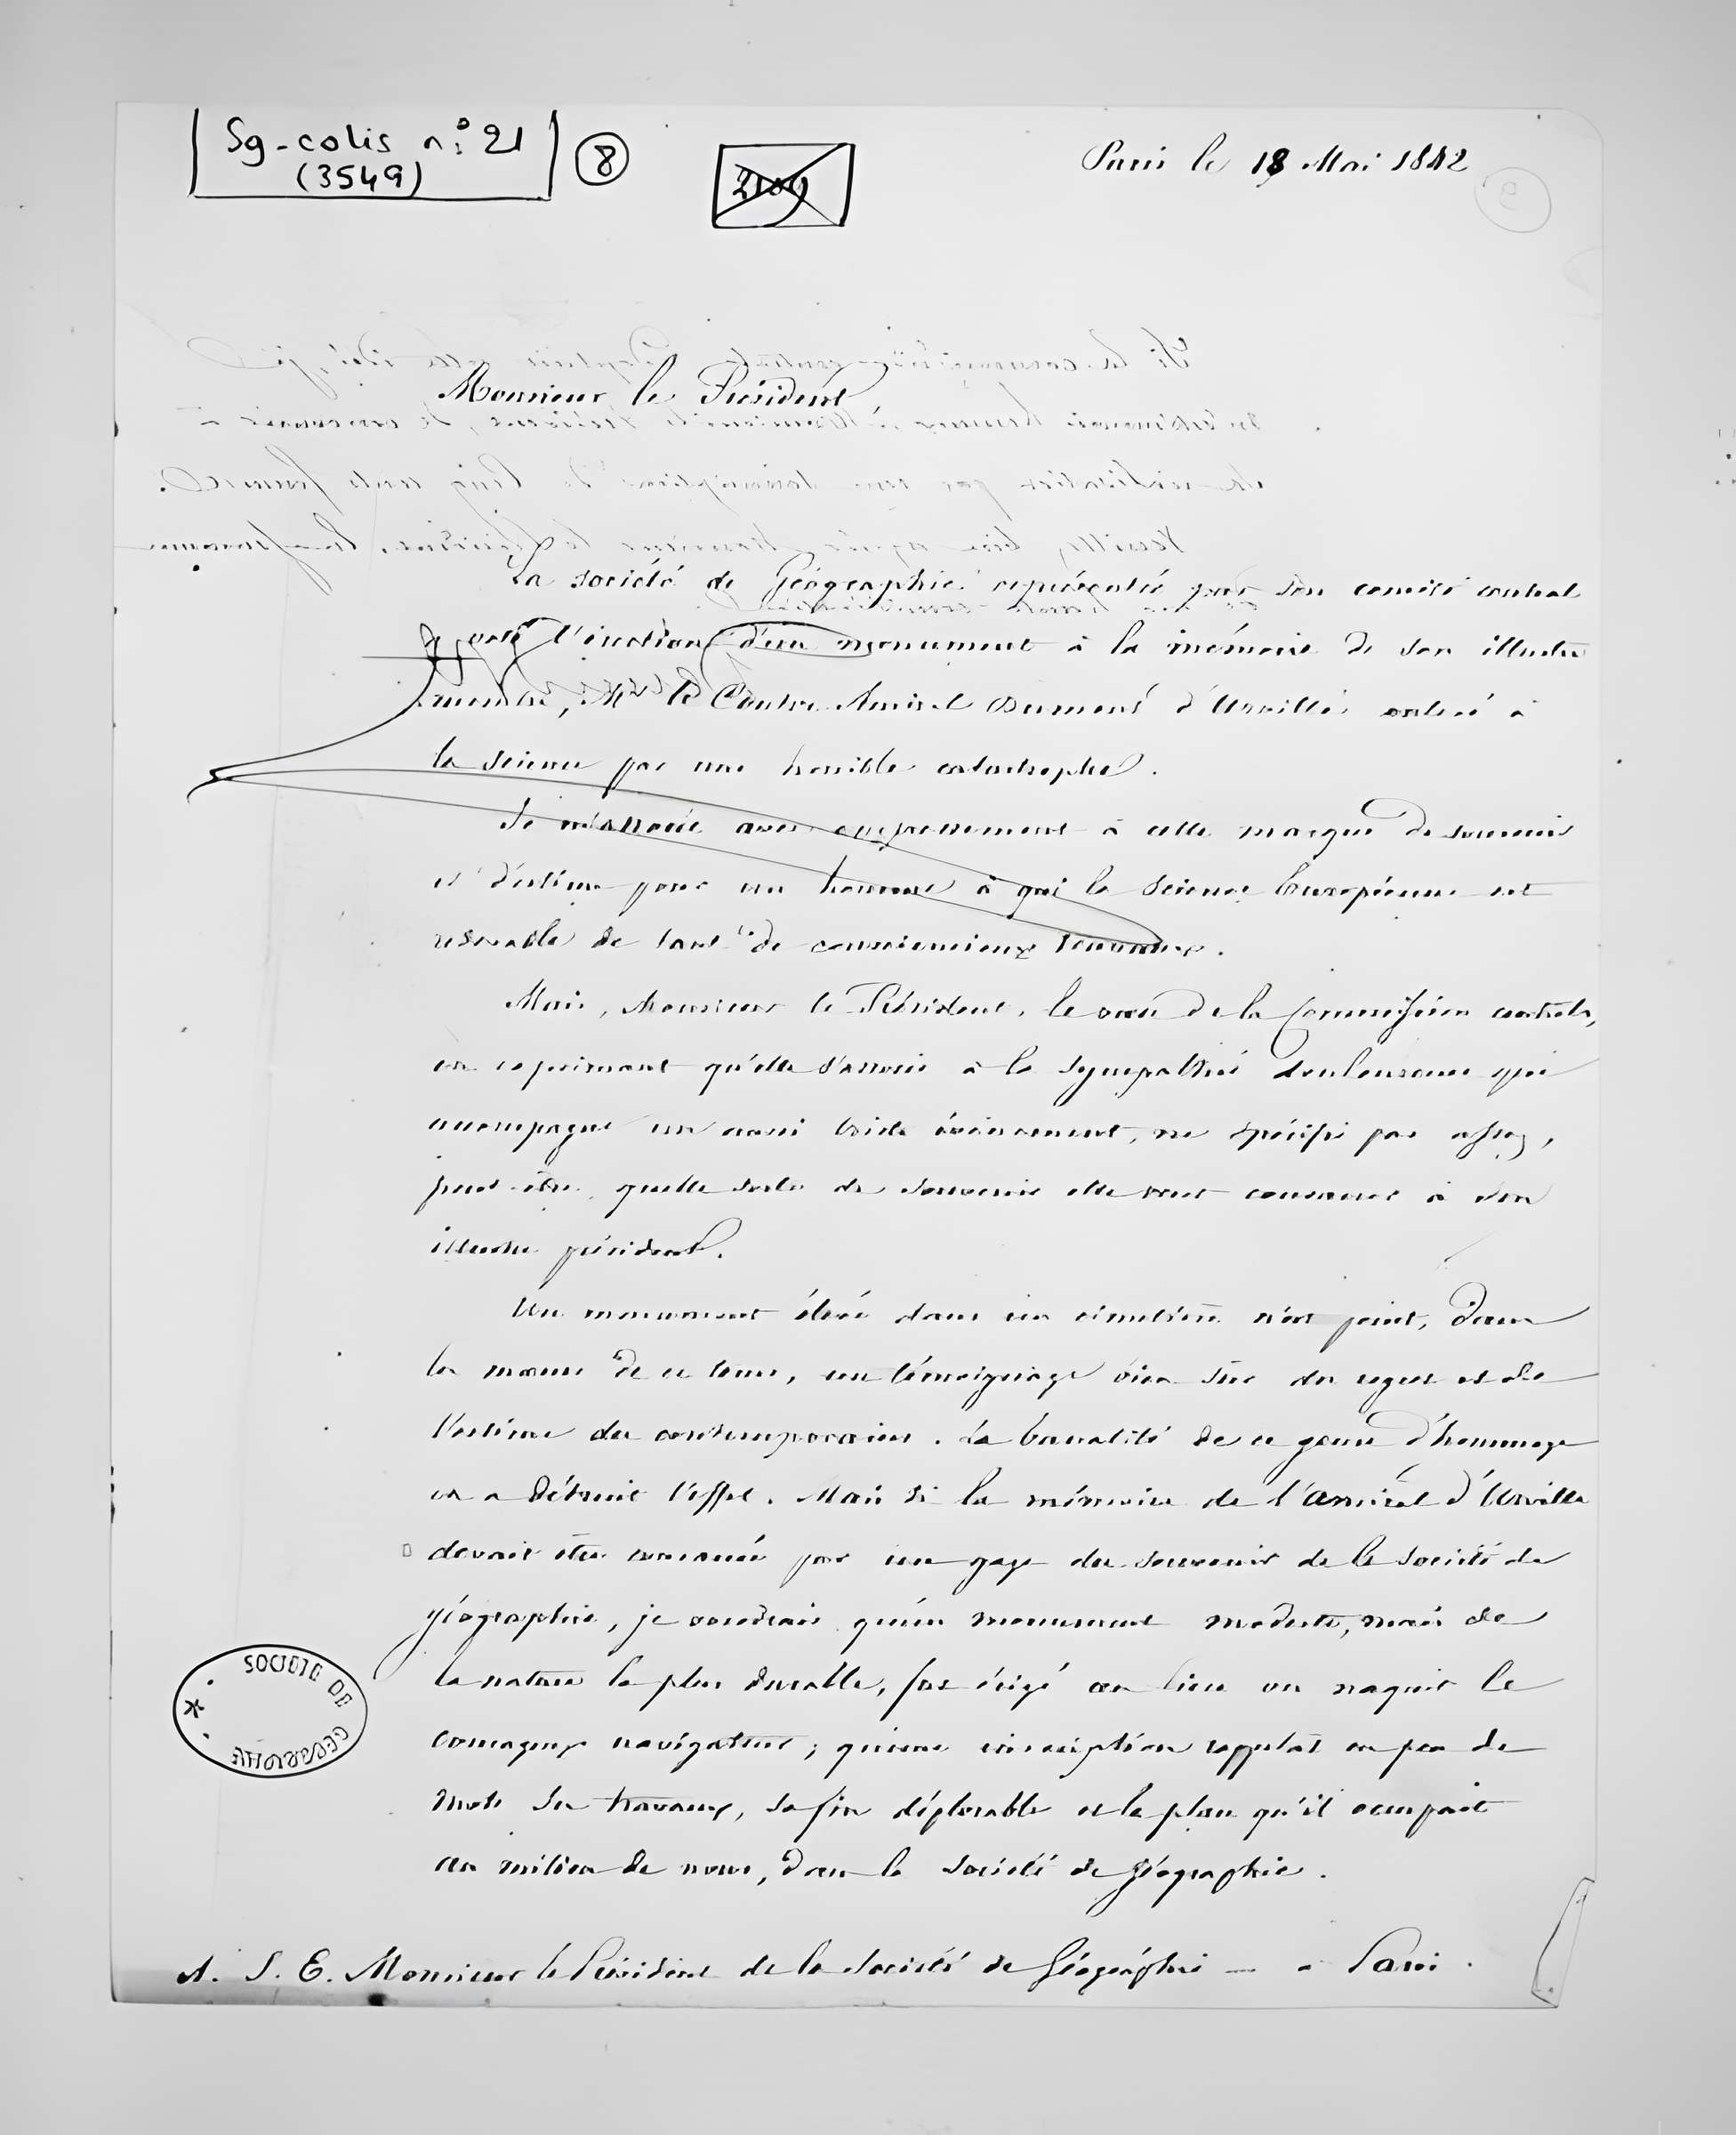 Sg-colis n° 21
(3549)
8
2109
Paris le 18 Mai 1842
Monsieur le Président
La société de Géographie représentée par son comité central
a voté l'érection d'un monument à la mémoire de son illustre
membre, Mr le Contre Amiral Dumont d'Urville enlevé à
la science par une horrible catastrophe.
Je m'associe avec empressement à cette marque de souvenir
et d'estime pour un homme à qui la Science Européenne est
redevable de tant de consciencieux travaux.
Mais, Monsieur le Président, le vœu de la Commission centrale,
en exprimant qu'elle s'associe à la sympathie douloureuse qui
accompagne un aussi triste événement, ne spécifie pas assez,
peut être, quelle sorte de souvenir elle veut consacrer à son
illustre président.
Un monument élevé dans un cimetière n'est point, dans
les mœurs de ce tems, un témoignage bien sûr du regret et de
l'estime des contemporains. La banalité de ce genre d'hommage
en a détruit l'effet. Mais si la mémoire de l'amiral d'Urville
devait être consacrée par un gage du souvenir de la société de
géographie, je voudrais qu'un monument modeste, mais de
la nature la plus durable, fut érigé au lieu où naquit le
courageux navigateur; qu'une inscription rappelat en peu de
mots ses travaux, sa fin déplorable et la place qu'il occupait
au milieu de nous, dans la société de géographie.
SOCIETE DE GEOGRAPHIE
A. S. E. Monsieur le Président de la Société de Géographie — à Paris.